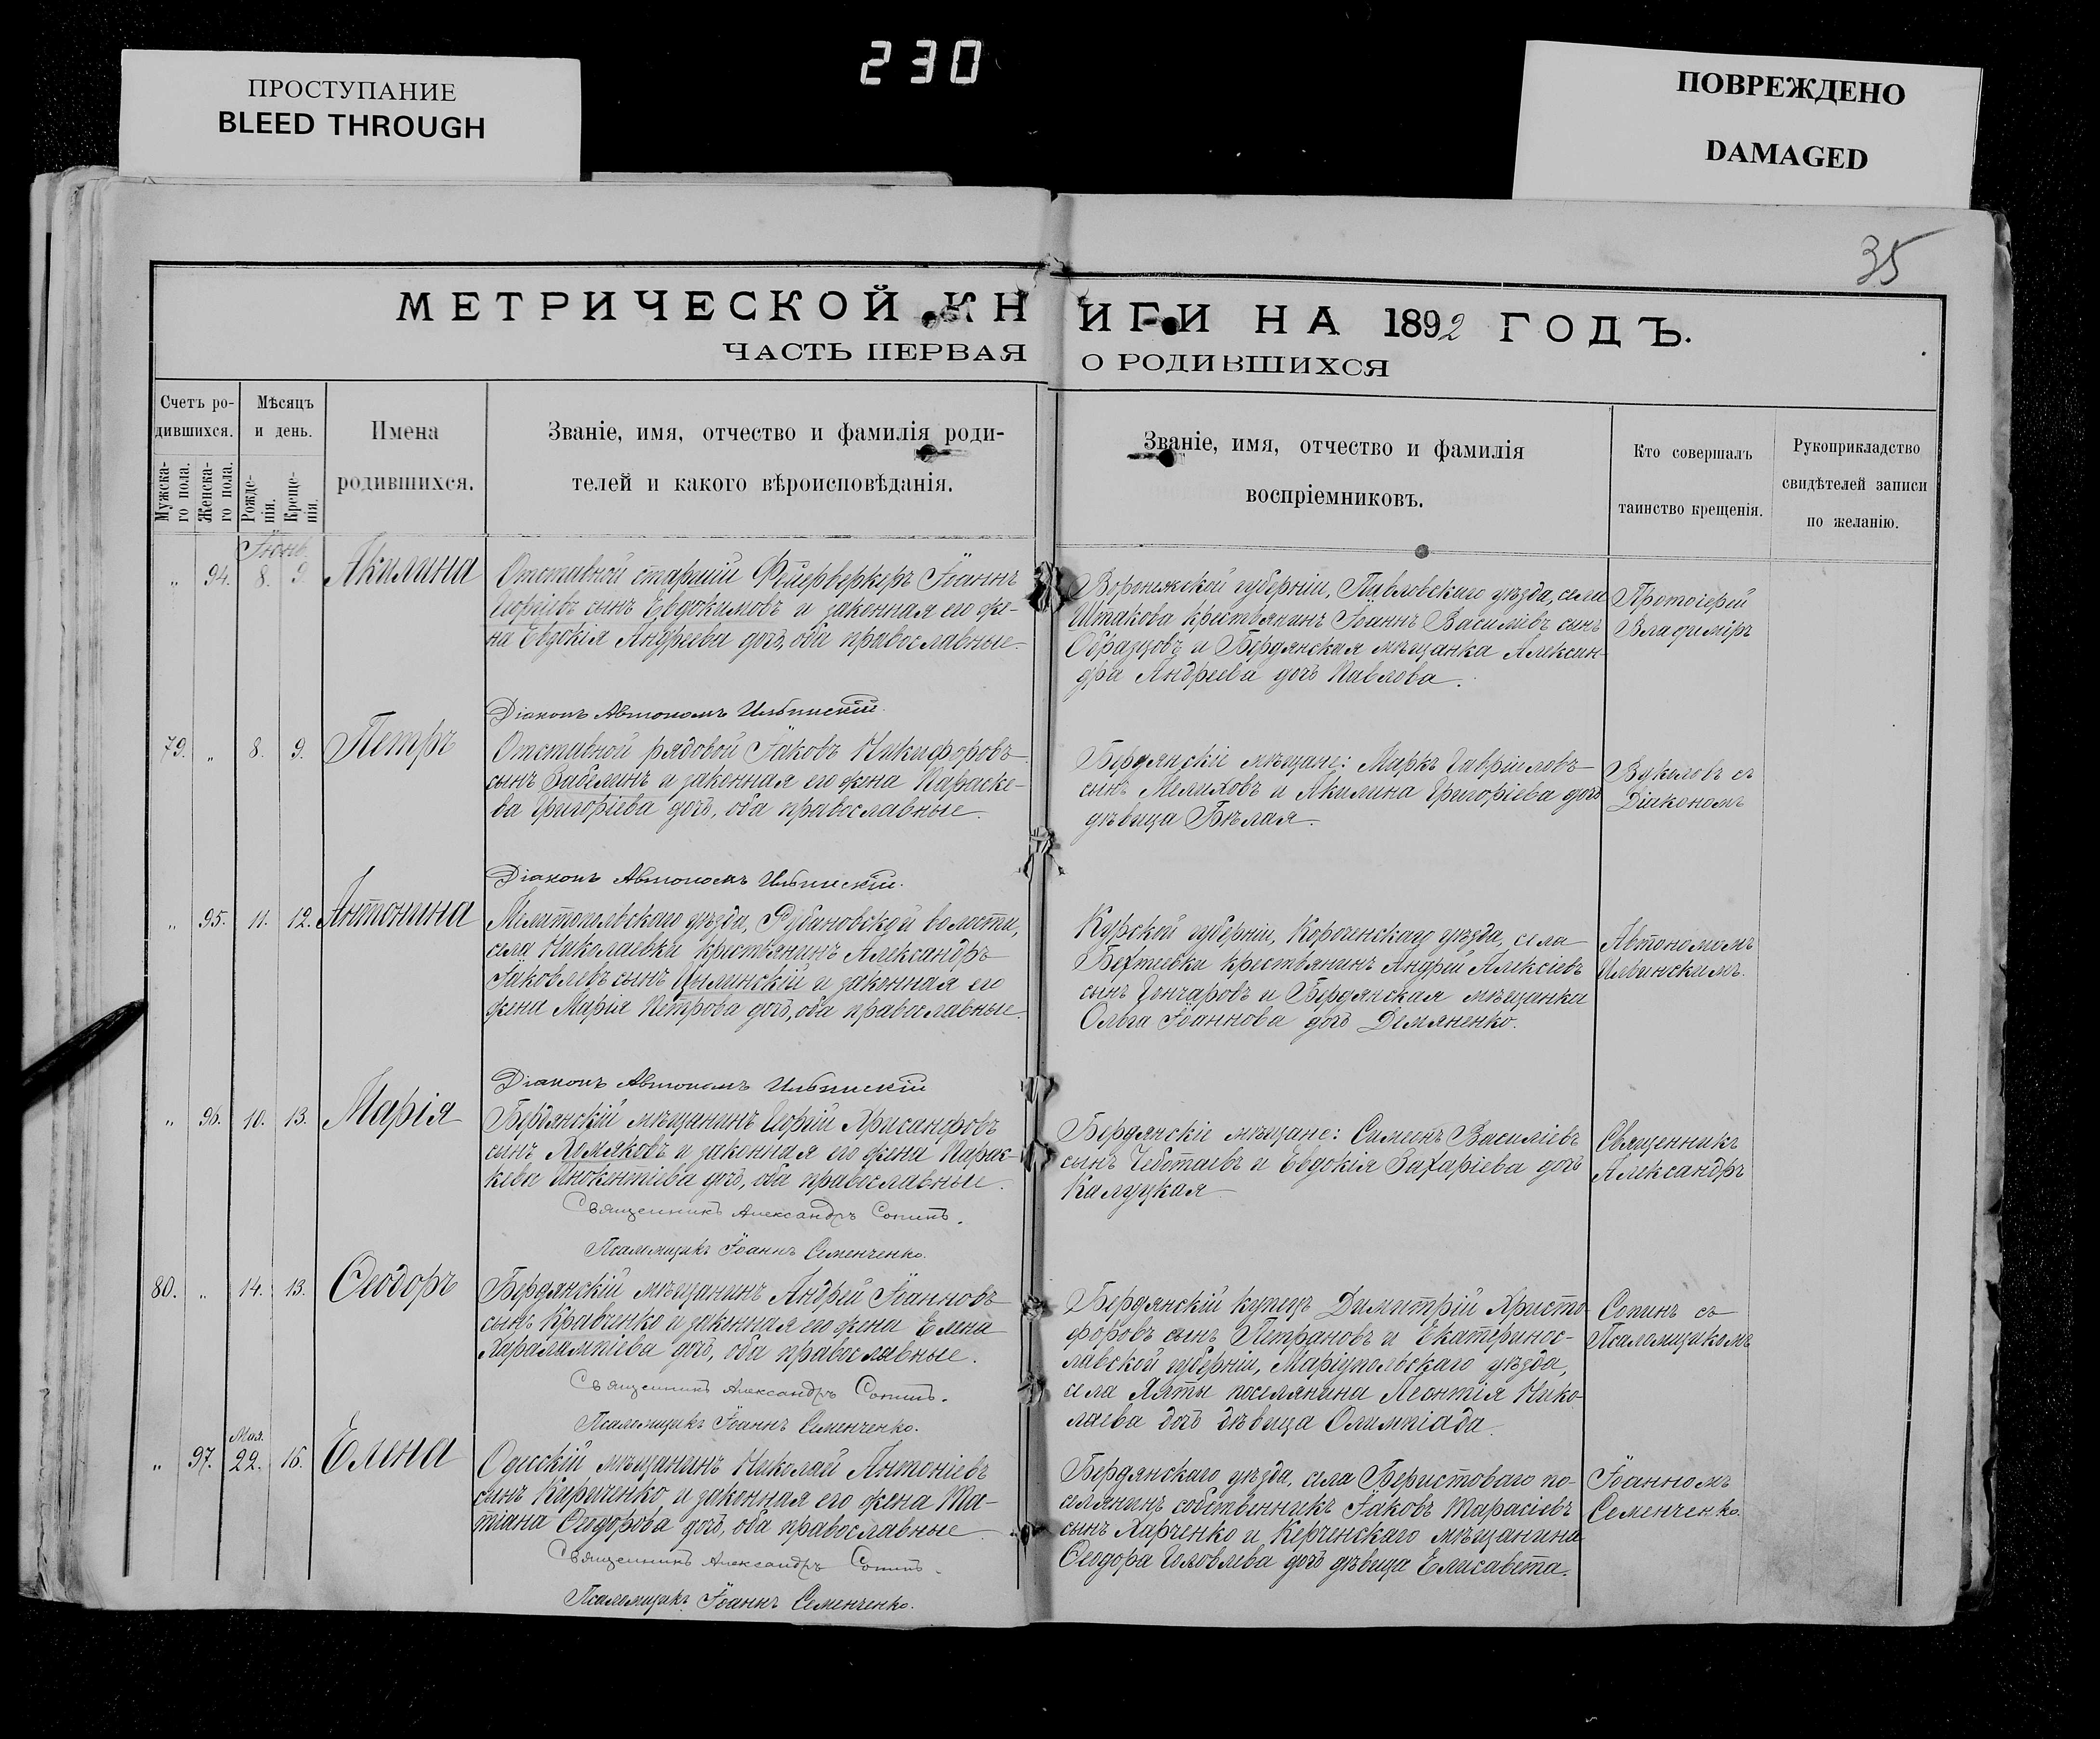 230
ПРОСТУПАНИЕ
BLEED THROUGH
ПОВРЕЖДЕНО
DAMAGED
35
МЕТРИЧЕСКОЙ КНИГИ НА 1892 ГОДЪ.
ЧАСТЬ ПЕРВАЯ О РОДИВШИХСЯ
Счетъ ро-
дившихся.
Мужска-
го пола.
Женска-
го пола.
Мѣсяцъ
и день.
Рожде-
нія.
Креще-
нія.
Имена
родившихся.
Званіе, имя, отчество и фамилія роди-
телей и какого вѣроисповѣданія.
Званіе, имя, отчество и фамилія
воспріемниковъ.
Кто совершалъ
таинство крещенія.
Рукоприкладство
свидѣтелей записи
по желанію.
Іюнь.
„ 94. 8. 9. Акилина
Отставной старшій Фейерверкеръ Іоаннъ
Георгіевъ сынъ Евдокимовъ и законная его же-
на Евдокія Андреева дочь, оба православные.
Воронежской губерніи, Павловскаго уѣзда, села
крестьянинъ Іоаннъ Василіевъ сынъ
Образцовъ и Бердянская мѣщанка Алексан-
дра Андреева дочь Павлова.
Протоіерей
Владиміръ
Діаконъ Автономъ Ильинскій.
79. „ 8. 9. Петръ
Отставной рядовой Іаковъ Никифоровъ
сынъ Забелинъ и законная его жена Параске-
ва Григоріева дочь, оба православные.
Бердянскіе мѣщане: Маркъ Гавріиловъ
сынъ Мелиховъ и Акилина Григоріева дочь
дѣвица Бѣлая.
Вуколовъ съ
Діакономъ
Діаконъ Автономъ Ильинскій.
„ 95. 11. 12. Антонина
Мелитопольскаго уѣзда, Рубановской волости,
села Николаевки крестьянинъ Александръ
Іаковлевъ сынъ Цылинскій и законная его
жена Марія Петрова дочь, оба православные.
Курской губерніи, Короченскаго уѣзда, села
Бехтеевки крестьянинъ Андрей Алексіевъ
сынъ Гончаровъ и Бердянская мѣщанка
Ольга Іоаннова дочь Демяненко.
Автономомъ
Ильинскимъ.
Діаконъ Автономъ Ильинскій
„ 96. 10. 13. Марія
Бердянскій мѣщанинъ Георгій Хрисанфовъ
сынъ Хомяковъ и законная его жена Парас-
кева Инокентіева дочь, оба православные.
Бердянскіе мѣщане: Симеонъ Василіевъ
сынъ Чеботаевъ и Евдокія Захаріева дочь
Калуцкая.
Священникъ
Александръ
Священникъ Александръ Сопинъ.
Псаломщикъ Іоаннъ Семенченко.
80. „ 14. 13. Ѳеодоръ
Бердянскій мѣщанинъ Андрей Іоанновъ
сынъ Кравченко и законная его жена Елена
Харалампіева дочь, оба православные.
Бердянскій купецъ Димитрій Христо-
форовъ сынъ Петрановъ и Екатеринос-
лавской губерніи, Маріупольскаго уѣзда,
села Ялты поселянина Леонтія Нико-
лаева дочь дѣвица Олимпіада.
Сопинъ съ
Псаломщикомъ
Священникъ Александръ Сопинъ.
Псаломщикъ Іоаннъ Семенченко.
Мая.
„ 97. 22. 16. Елена
Одесскій мѣщанинъ Николай Антоніевъ
сынъ Кириченко и законная его жена Та-
тіана Ѳеодорова дочь, оба православные
Бердянскаго уѣзда, села Берестоваго по-
селянинъ собственникъ Іаковъ Тарасіевъ
сынъ Харченко и Керченскаго мѣщанина
Ѳеодора Головлева дочь дѣвица Елисавета.
Іоанномъ
Семенченко.
Священникъ Александръ Сопинъ.
Псаломщикъ Іоаннъ Семенченко.